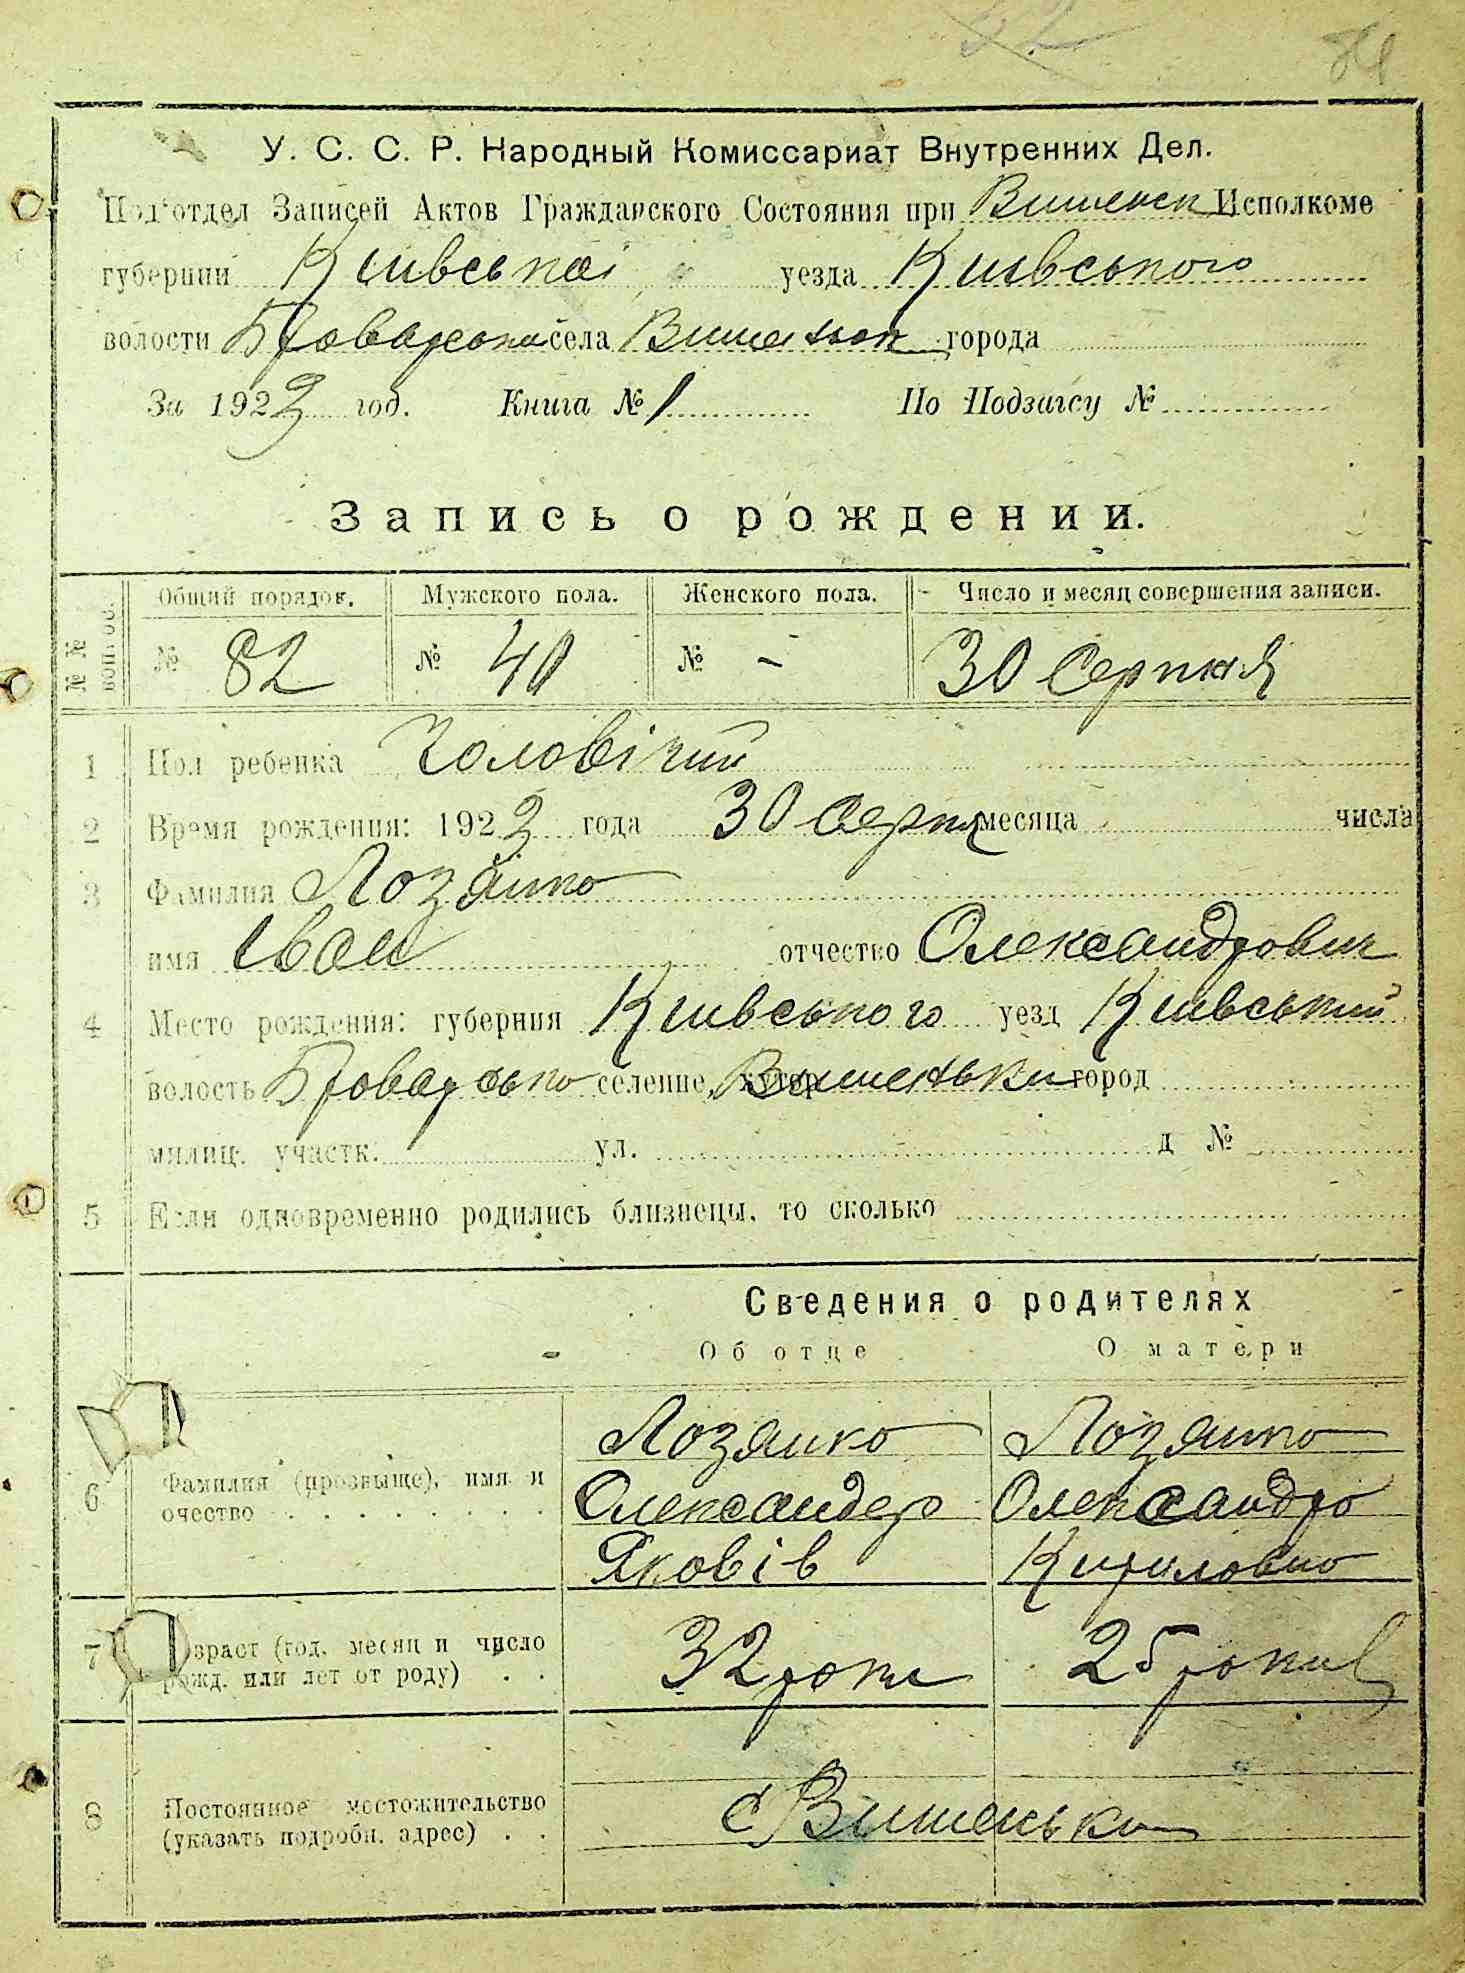 84
У. С. С. Р. Народный Комиссариат Внутренних Дел.
Под'отдел Записей Актов Гражданского Состояния при Вишенск Исполкоме
губернии Київської уезда Київського
волости Броварской села Вишеньок города
За 1922 год. Книга № 1 По Подзагсу №
Запись о рождении.
№№ вопросов. Общий порядов. Мужского пола. Женского пола. Число и месяц совершения записи.
№ 82 № 40 № - 30 Серпня
1 Пол ребенка Чоловічий
2 Время рождения: 1922 года 30 Серпня месяца числа
3 Фамилия Лозянко
имя Іван отчество Олександрович
4 Место рождения: губерния Київського уезд Київський
волость Броварсько селение, хутор Вишеньки город
милиц. участк. ул. д №
5 Если одновременно родились близнецы, то сколько
Сведения о родителях
Об отце О матери
6 Фамилия (прозвыще), имя и очество Лозянко Лозянко
Олександер Олександра
Яковів Кириловна
7 Возраст (год, месяц и число рожд. или лет от роду) 32 роки 25 років
8 Постоянное местожительство (указать подробн. адрес) с Вишеньки